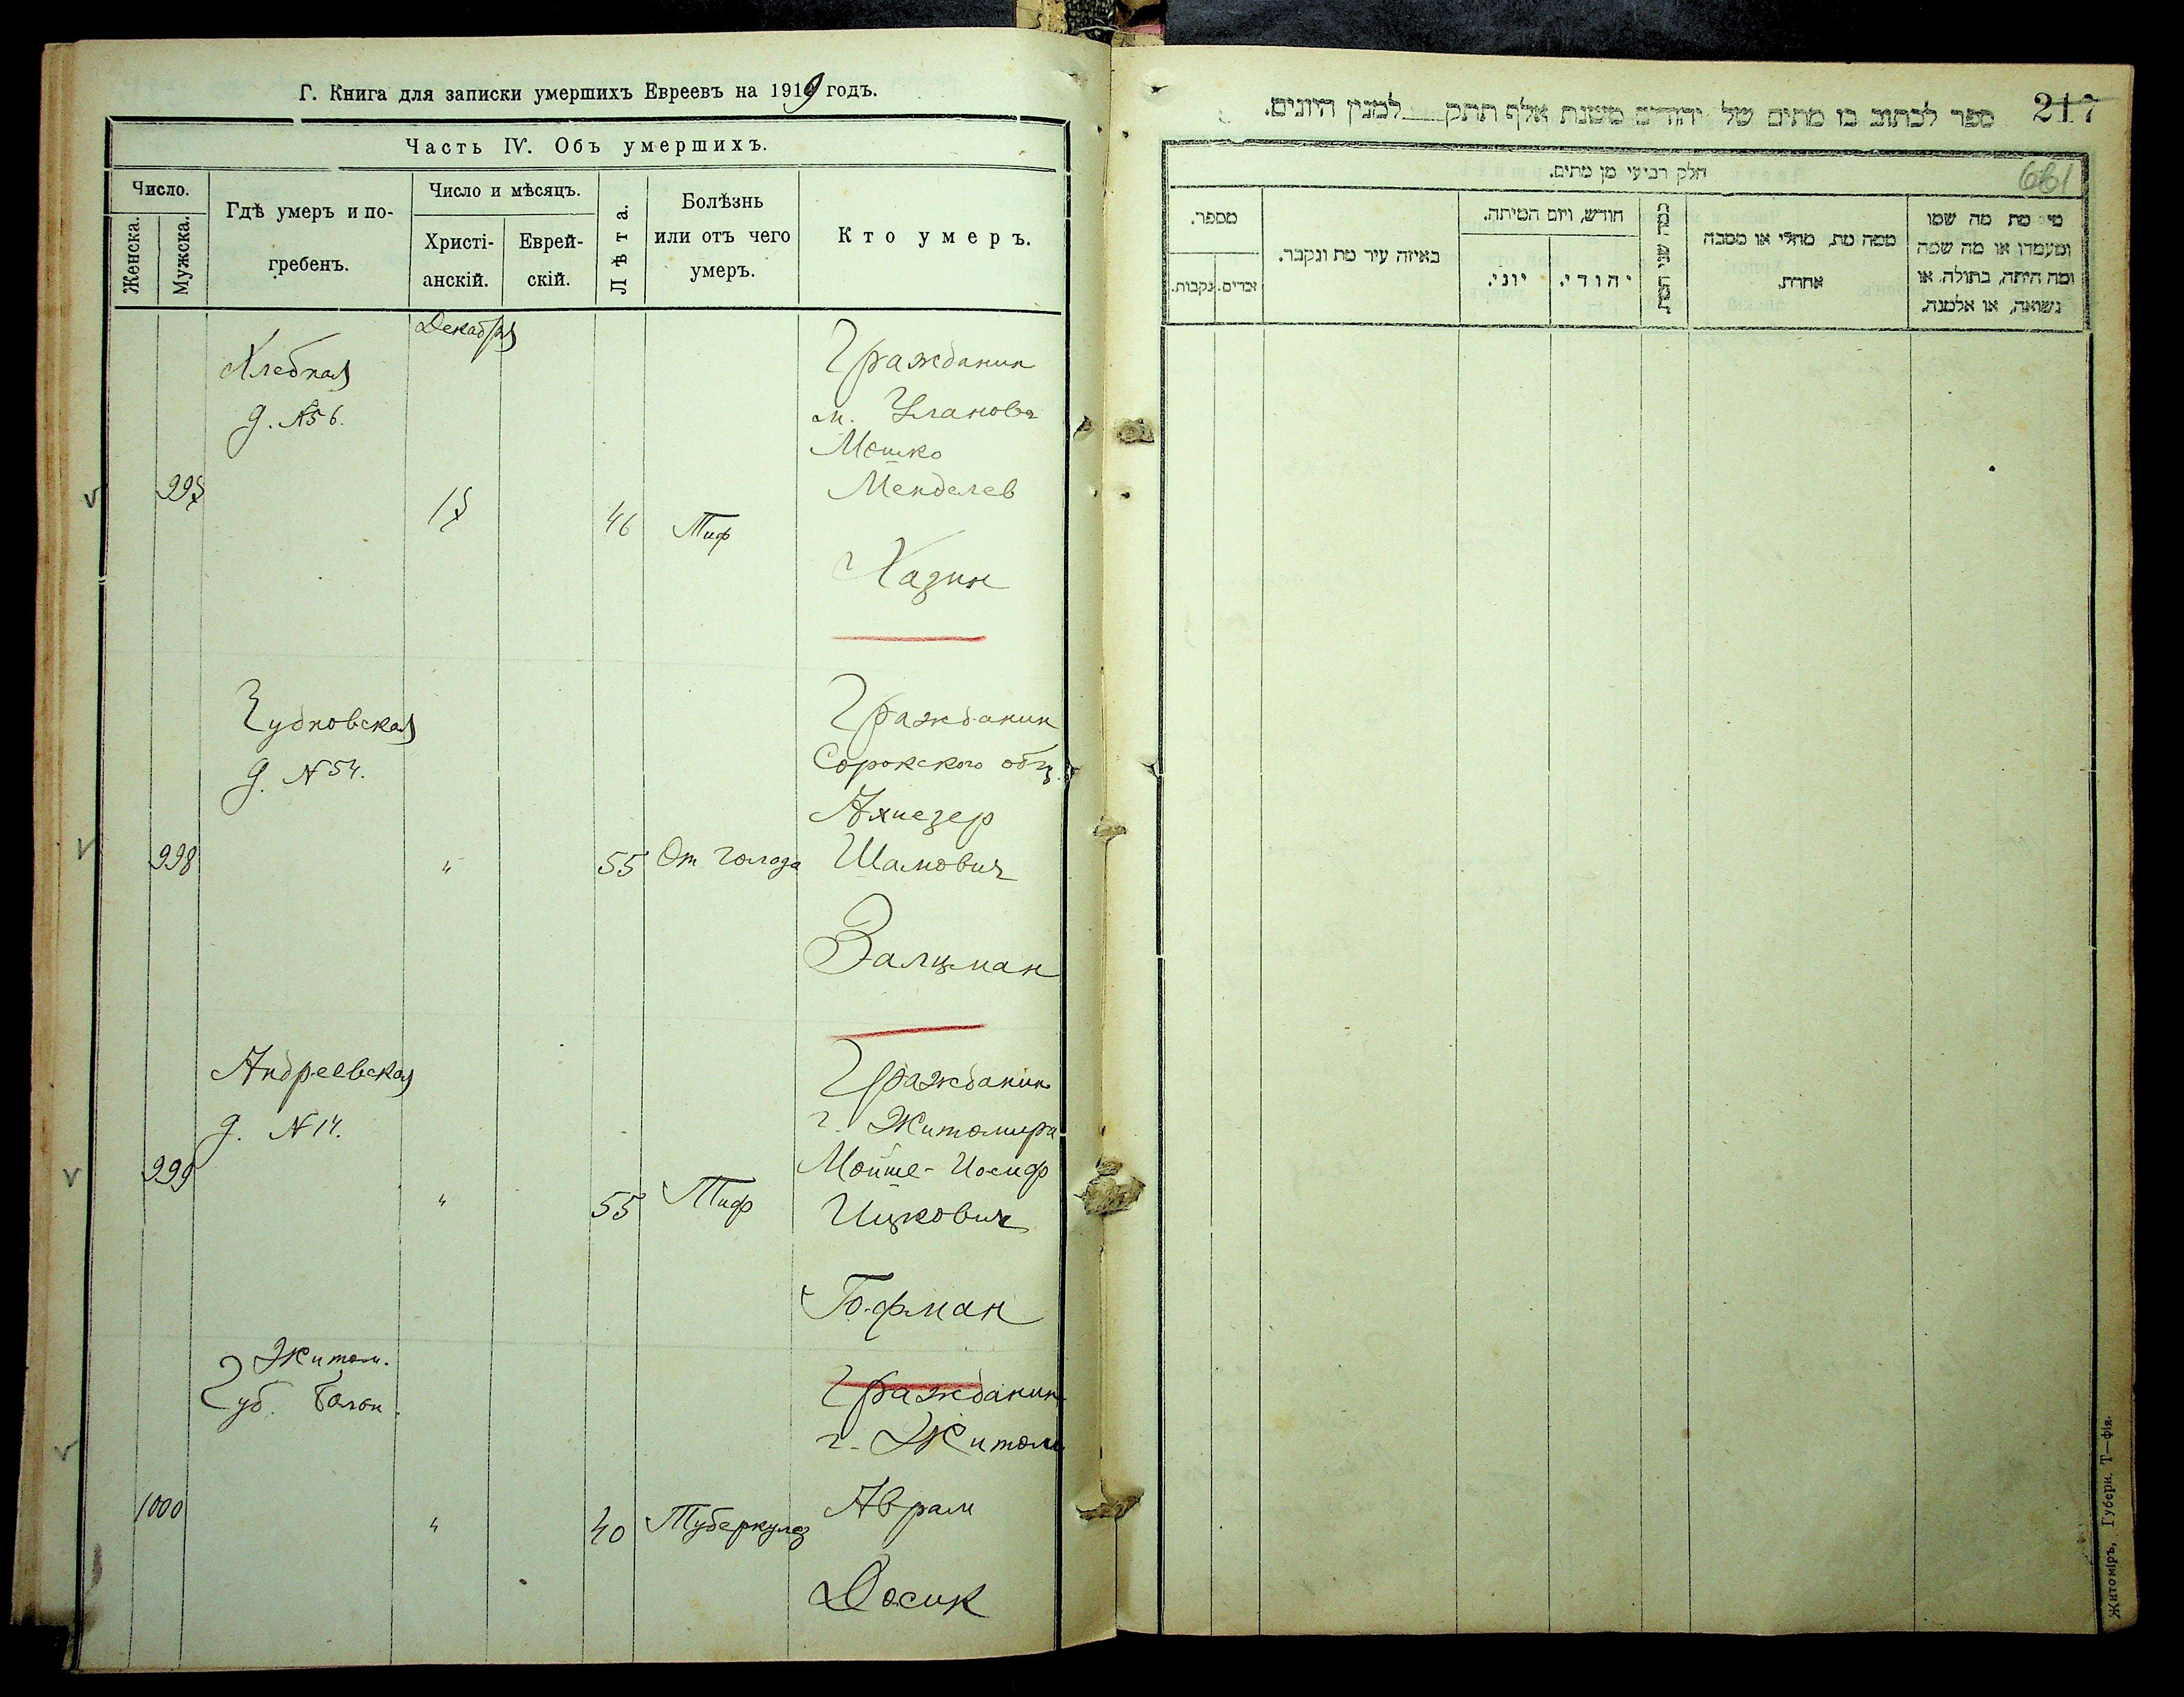 Г. Книга для записки умершихъ Евреевъ на 1919 годъ.
Часть IV. Объ умершихъ.
Число.
Женска.
Мужска.
Гдѣ умеръ и по-
гребенъ.
Число и мѣсяцъ.
Христі-
анскій.
Еврей-
скій.
Лѣта.
Болѣзнь
или отъ чего
умеръ.
Кто умеръ.
Декабря
Хлебная
д. №56.
997
17
46
Тиф
Гражданин
м. Уланова
Мошко
Менделев
Хазин
Чудновская
д. №54.
998
"
55
От голода
Гражданин
Сорокского общ.
Ахиезер
Шамович
Залцман
Андреевская
д. №14.
999
"
55
Тиф
Гражданин
г. Житомира
Мойше-Иосиф
Ицкович
Гофман
Житом.
Губ. Болн.
1000
"
40
Туберкулез
Гражданин
г. Житом
Аврам
Досик
ספר לכתוב בו מתים של יהודים משנת אלף תתק למנין היונים.
217
661
חלק רביעי מן מתים.
מספר.
זכרים.
נקבות.
באיזה עיר מת ונקבר.
חודש, ויום המיתה.
יוני.
יהודי.
כמה שני המת.
ממה מת, מחלי או מסבה
אחרת.
מי מת מה שמו
ומעמדו או מה שמה
ומה היתה, בתולה או
נשואה, או אלמנה.
Житоміръ, Губерн. Т—фія.